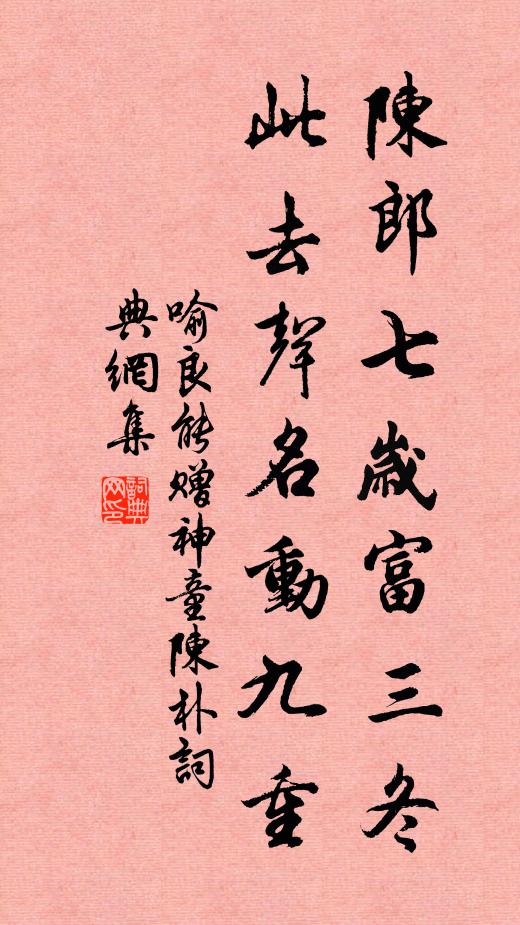 陳郎七歲富三冬
此去聲名動九重
喻良能贈神童陳朴詞
典網集
詞典網印